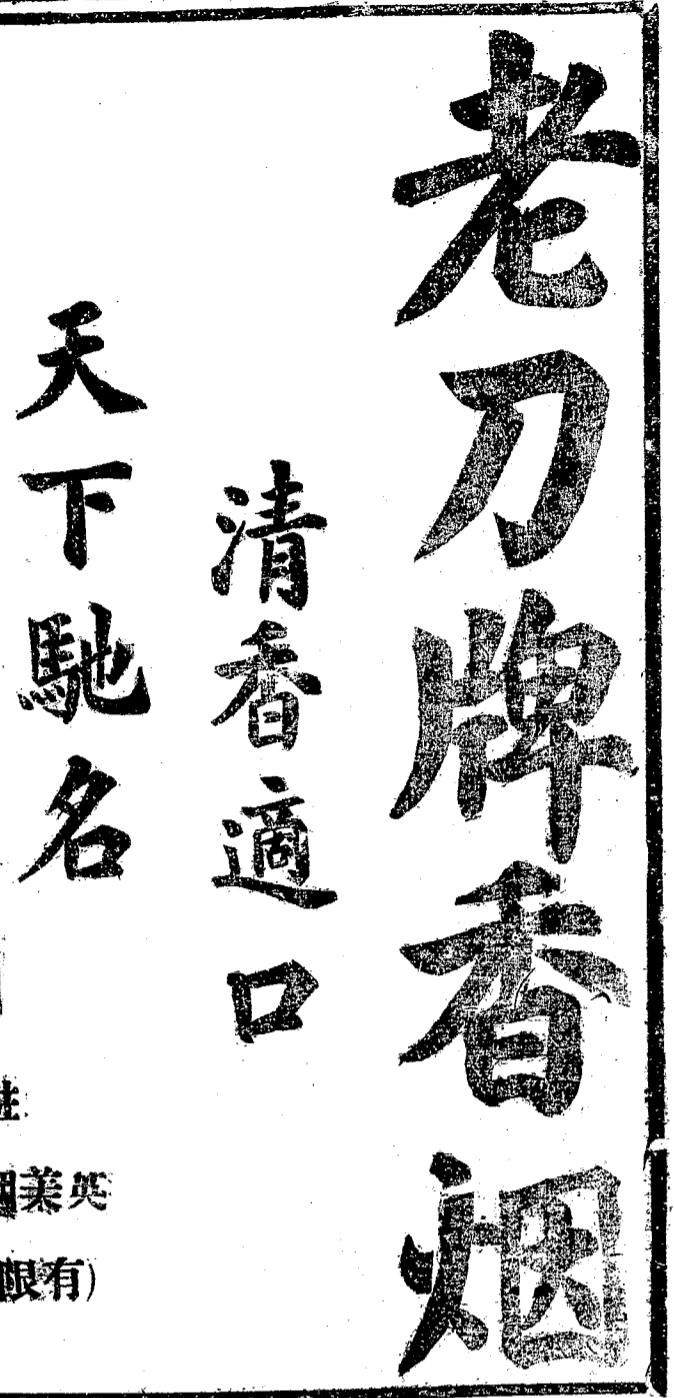 老刀牌香烟
清香適口
天下馳名
英美
(有限